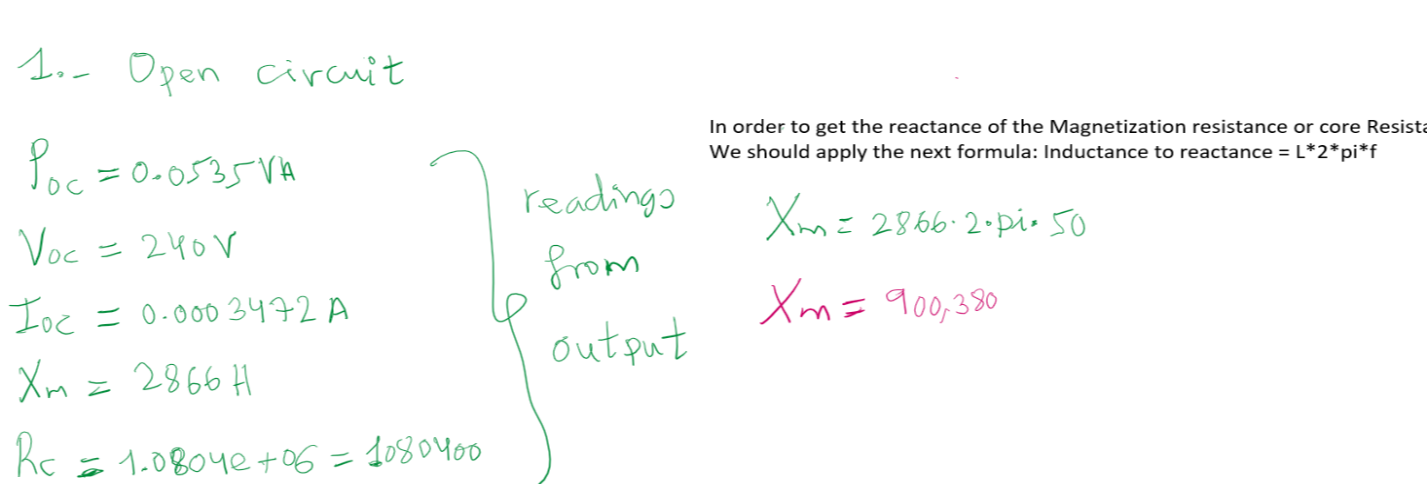 1.- Open circuit
Poc = 0.0535 VA
Voc = 240 V
Ioc = 0.0003472 A
Xm = 2866 H
Rc = 1.0804e+06 = 1080400
readings
from
output
In order to get the reactance of the Magnetization resistance or core Resista
We should apply the next formula: Inductance to reactance = L*2*pi*f
Xm = 2866·2·pi·50
Xm = 900,380